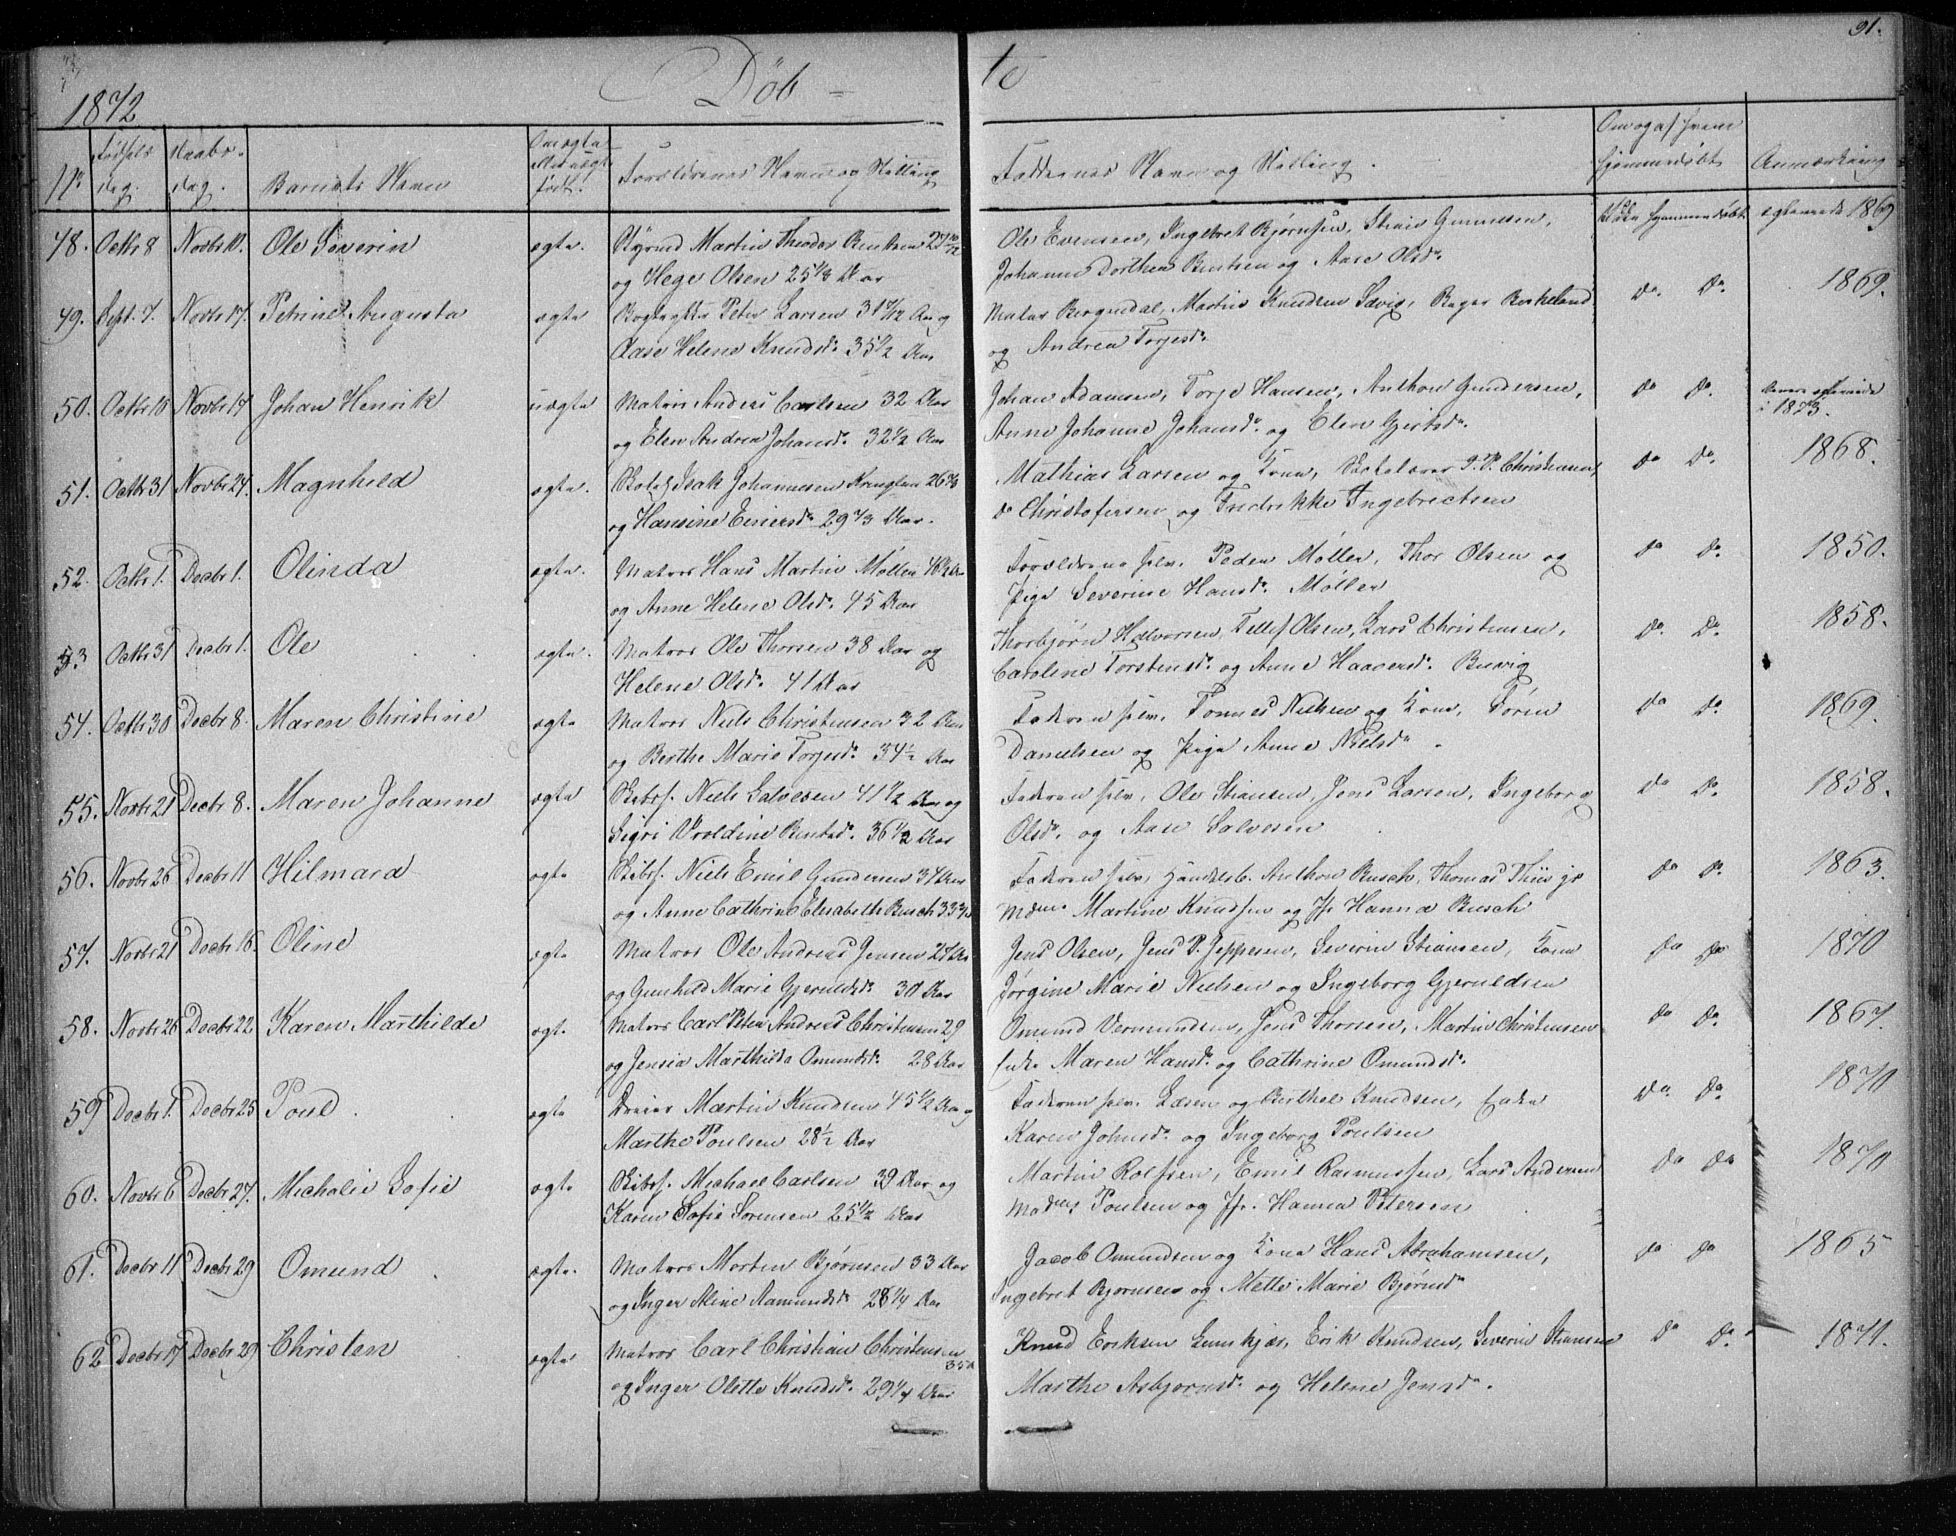 31.
1872 Döb - te
No Fødsels dag. Daabs dag. Barnets Navn Om ægte eller uægte født. Forældrenes Navn og Stilling Faddernes Navn og Stilling. Om og af hvem hjemmedøbt Anmærkning
48. Octbr 8 Novbr 10. Ole Severin ægte. Styrmd Martin Theodor Bentsen 27 10/12 Ole Evensen, Ingebret Bjørnsen, Stian Gunnelsen, Ikke hjemmedøbt ægteviede 1869
og Hege Olsen 25 1/3 Aar Johanne Dorthea Bentsen og Aase Olsdr
49. Sept. 7. Novbr 17. Petrine Augusta ægte Peter Larsen 31 1/2 Aar og Martin Knudsen Do. Do. 1869.
Aase Helene Knudsdr 35 1/2 Aar og Andrea Torjesdr
50. Octbr 18 Novbr 17 Johan Henrik uægte Matros Anders Carlsen 32 Aar Johan Adamsen, Torje Hansen, Anthon Gundersen, Do Do. i 1873.
og Elen Andrea Johansdr. 32 1/2 Aar Anne Johanne Johansdr og Elen Gjertsdr.
51. Octbr 31 Novbr 24. Magnhild ægte. Isak Johannesen Kringlen 26 Mathias Larsen og Kone, P. P. Christensen Do Do. 1868.
og Hansine Einersdr 29 1/3 Aar. Do Christofersen og Fredrikke Ingebrectsen
52. Octbr 1. Decbr 1. Olinda ægte. Matros Hans Martin Møller Forældrene selv. Peder Møller, Thor Olsen og Do Do. 1850.
og Anne Helene Olsdr. 45 Aar Pige Severine Hansdr. Møller
53 Octbr 31 Decbr 1. Ole ægte. Matros Ole Thorsen 38 Aar og Thorbjørn Halvorsen, Tellef Olsen, Lars Christensen, Do. Do. 1858.
Helene Olsdr. 41 Aar Caroline Torstensdr og Anne Haaversdr. Buvig
54. Octbr 30 Decbr 8. Maren Christine ægte Matros Niels Christensen 32 Aar Faderen selv. Tonnes Nielsen og Kone, Do Do. 1869.
og Berthe Marie Torjesdr. 34 1/2 Aar Danielsen og Pige Anne Nielsdr.
55. Novbr 21 Decbr 8. Maren Johanne ægte Skibsf. Niels Salvesen 41 1/2 Aar og Faderen selv, Ole Stiansen, Jens Larsen, Ingeborg Do Do. 1858.
Sigri Uroldine Bentsdr. 36 1/2 Aar Olsdr. og Aase Salvesen
56. Novbr 26 Decbr 11 Hilmara ægte Skibsf. Niels Emil Gundersen 37 Aar Faderen selv, Handelsb. Anthon Busch, Thomas Thiis jr Do Do. 1863.
og Anne Cathrine Elisabeth Busch 33 3/4 Mdme Martine Knudsen og Jfr Hanna Busch
57. Novbr 21 Decbr 16. Oline ægte Matros Ole Andreas Jensen 27 Aar Jens Olsen, Jens P. Jeppesen, Severin Stiansen, Kone Do Do 1870
og Gunhild Marie Gjeruldsdr. 30 Aar Jørgine Marie Nielsen og Ingeborg Gjeruldsen
58. Novbr 26 Decbr 22. Karen Marthilde ægt. Matros Carl Peter Andreas Christensen 29 Omund Vermundsen, Jens Thorsen, Martin Christensen Do Do. 1867.
og Jensia Marthilda Omundsdr. 28 Aar Enke Maren Hansdr. og Cathrine Omundsdr.
59 Decbr 1. Decbr 25 Poul ægte Martin Knudsen 45 1/2 Aar og Faderen selv. og Berthe Knudsen, Enke Do. Do. 1870
Marthe Poulsen 28 1/2 Aar Karen Johnsdr og Ingeborg Poulsen
60. Novbr 6 Decbr 27. Michalie Sofie ægte Skibsf. Michael Carlsen 39 Aar og Martin Rolfsen, Emil Rasmussen, Lars Andersen Do Do 1870
Karen Sofie Sorensen 25 1/2 Aar Madms Poulsen og Jfr. Hanna Petersen
61. Decbr 11 Decbr 29 Omund ægte. Matros Morten Bjørnsen 33 Aar Jacob Omundsen og Kone Hans Abrahamsen, Do Do 1865
og Inger Aline Aamundsdr. 28 1/4 Aar Ingebret Bjornsen og Mette Marie Bjørnsdr
62 Decbr 17 Decbr 29 Christen ægte Matros Carl Christian Christensen 35 Knud Eriksen Erik Knudsen, Severin Stiansen Do Do. 1871.
og Inger Olette Knudsdr. 29 1/4 Aar Marthe Asbjornsdr og Helene Jensdr.